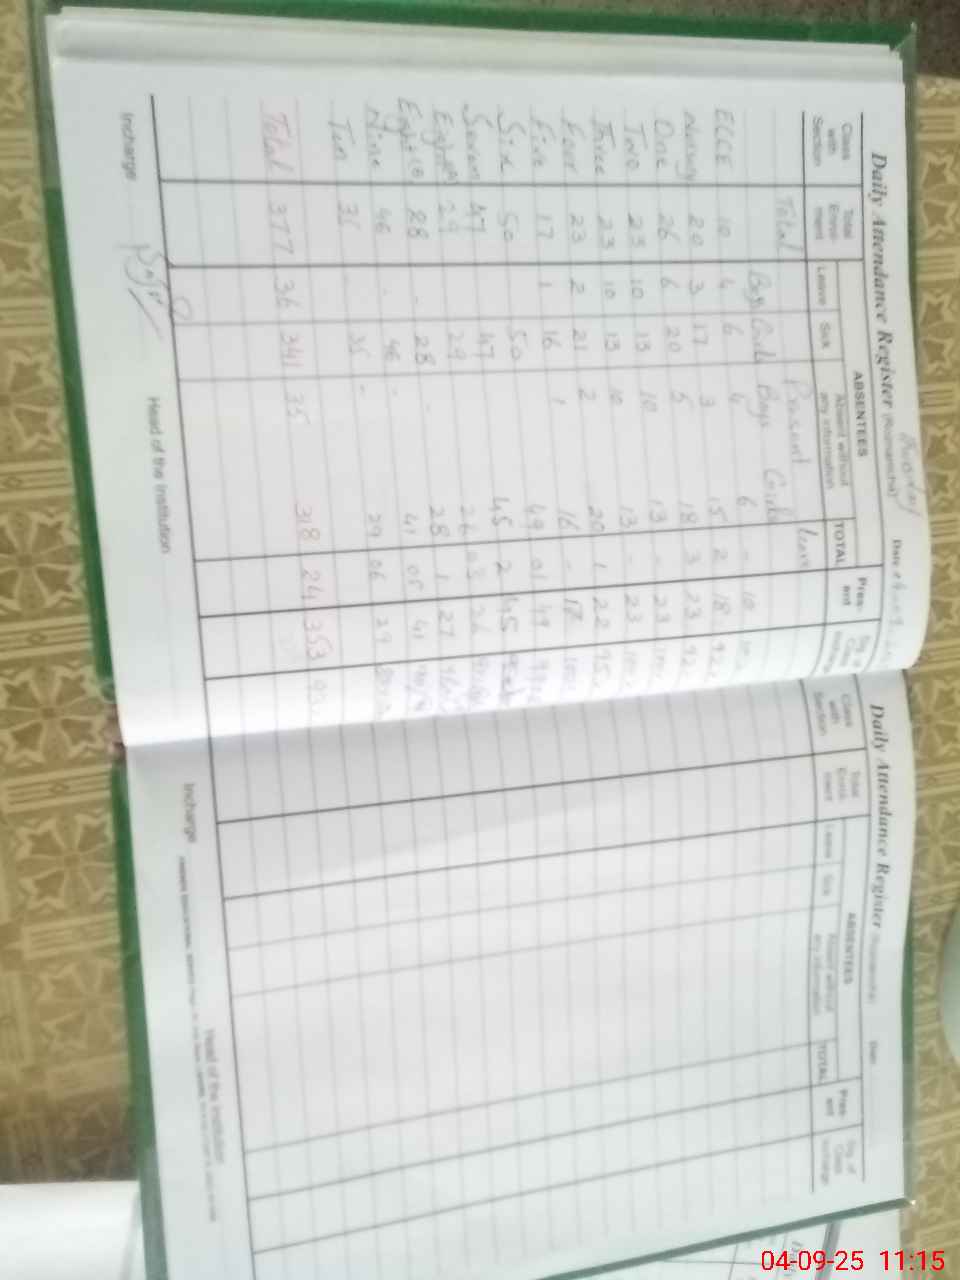 Daily Attendance Register (Roznamcha)
Thursday
Date
Class with Section
Total Enrol-ment
ABSENTEES
Leave
Sick
Absent without any information
TOTAL
Pres-ent
Sig. of Class Incharge
Total Present Leave
Boys Girls Boys Girls
ECCE 10 4 6 4 6 - 10
Nursery 20 3 17 3 15 2 18
One 26 6 20 5 18 3 23
Two 23 10 13 10 13 - 23
Three 23 10 13 10 13 - 23
Four 23 2 21 2 20 1 22
Five 17 1 16 1 16 - 17
Six 50 50 49 01 49
Seven 47 47 45 2 45
Eight(A) 29 29 26 03 26
Eight(B) 28 - 28 - 28 1 27
Nine 46 - 46 - 41 05 41
Ten 35 - 35 - 29 06 29
Total 377 36 341 35 318 24 353
Incharge
Head of the Institution
Daily Attendance Register (Roznamcha)
Date
Class with Section
Total Enrol-ment
ABSENTEES
Leave
Sick
Absent without any information
TOTAL
Pres-ent
Sig. of Class Incharge
Incharge
Head of the Institution
04-09-25 11:15